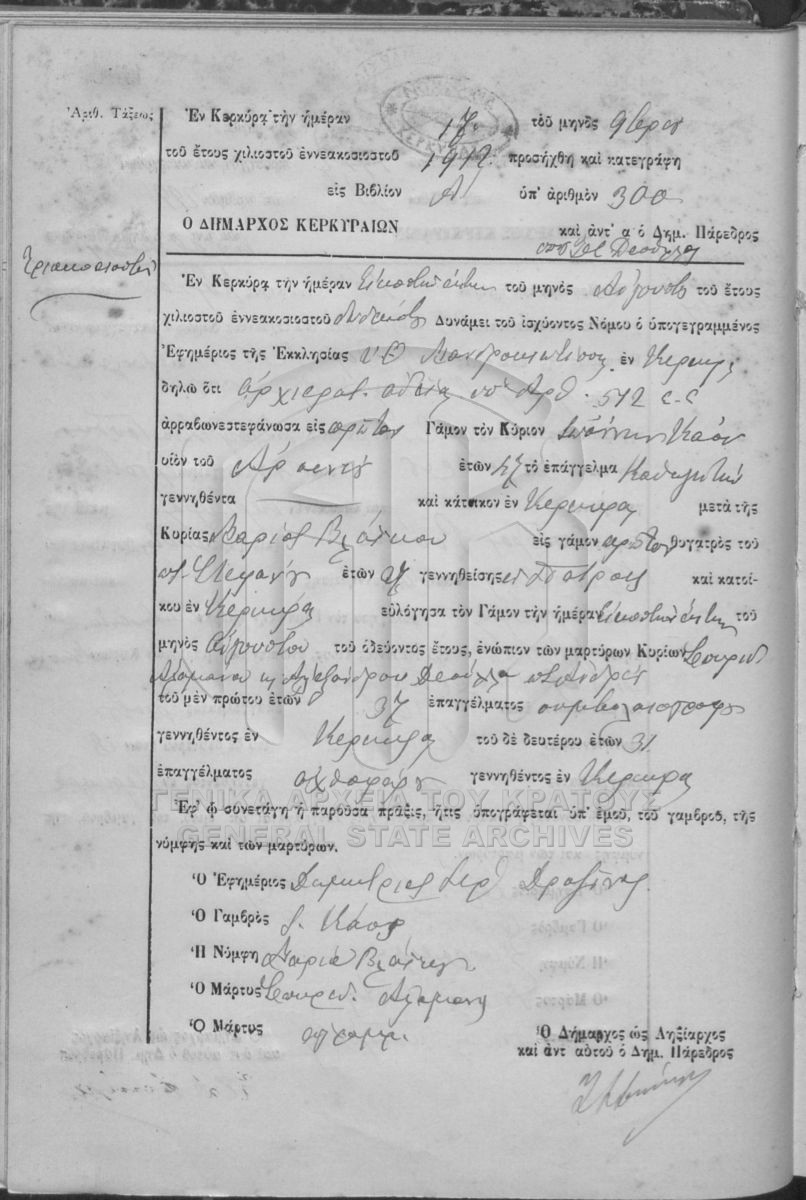 Ἀριθ. Τάξεως
Ἐν Κερκύρᾳ τὴν ἡμέραν 17 τοῦ μηνὸς 9βρίου
τοῦ ἔτους χιλιοστοῦ ἐννεακοσιοστοῦ 1912 προσήχθη καὶ κατεγράφη
εἰς Βιβλίον Α' ὑπ' ἀριθμὸν 300
Ὁ ΔΗΜΑΡΧΟΣ ΚΕΡΚΥΡΑΙΩΝ καὶ ἀντ' α ὁ Δημ. Πάρεδρος
Τριακοσιοστὴ
Ἐν Κερκύρᾳ τὴν ἡμέραν Εἰκοστὴν ἕκτην τοῦ μηνὸς Αὐγούστου τοῦ ἔτους
χιλιοστοῦ ἐννεακοσιοστοῦ δωδεκάτου Δυνάμει τοῦ ἰσχύοντος Νόμου ὁ ὑπογεγραμμένος
Ἐφημέριος τῆς Ἐκκλησίας Υ.Θ. Μανδρακιωτίσσης ἐν Κερκύρᾳ
δηλῶ ὅτι ἀρχιερατ. ἀδείᾳ ὑπ' ἀρθ. 512
ἀρραβωνεστεφάνωσα εἰς πρῶτον Γάμον τὸν Κύριον Ἰωάννην
υἱὸν τοῦ Ἀρσενίου ἐτῶν 47 τὸ ἐπάγγελμα Καθηγητὴν
γεννηθέντα καὶ κάτοικον ἐν Κερκύρᾳ μετὰ τῆς
Κυρίας Μαρίας Βλάικου εἰς γάμον πρῶτον θυγατρὸς τοῦ
Στεφάνου ἐτῶν γεννηθείσης ἐν Πάτραις καὶ κατοί-
κου ἐν Κερκύρᾳ εὐλόγησα τὸν Γάμον τὴν ἡμέραν εἰκοστὴν ἕκτην τοῦ
μηνὸς Αὐγούστου τοῦ ὁδεύοντος ἔτους, ἐνώπιον τῶν μαρτύρων Κυρίων Σπυρίδ.
Ἀλαμάνου κ Ἀλεξάνδρου Ἀνδρέου
τοῦ μὲν πρώτου ἐτῶν 37 ἐπαγγέλματος συμβολαιογράφου
γεννηθέντος ἐν Κερκύρᾳ τοῦ δὲ δευτέρου ἐτῶν 31
ἐπαγγέλματος ἀχθοφόρου γεννηθέντος ἐν Κερκύρᾳ
ΓΕΝΙΚΑ ΑΡΧΕΙΑ ΤΟΥ ΚΡΑΤΟΥΣ
Ἐφ' ᾧ συνετάγη ἡ παροῦσα πρᾶξις, ἥτις ὑπογράφεται ὑπ' ἐμοῦ, τοῦ γαμβροῦ, τῆς
GENERAL STATE ARCHIVES
νύμφης καὶ τῶν μαρτύρων.
Ὁ Ἐφημέριος Δημήτριος
Ὁ Γαμβρὸς
Ἡ Νύμφη Μαρία Βλάικου
Ὁ Μάρτυς Σπυρίδ. Ἀλαμάνος
Ὁ Μάρτυς ἀγράμμ.
Ὁ Δήμαρχος ὡς Ληξίαρχος
καὶ ἀντ αὐτοῦ ὁ Δημ. Πάρεδρος